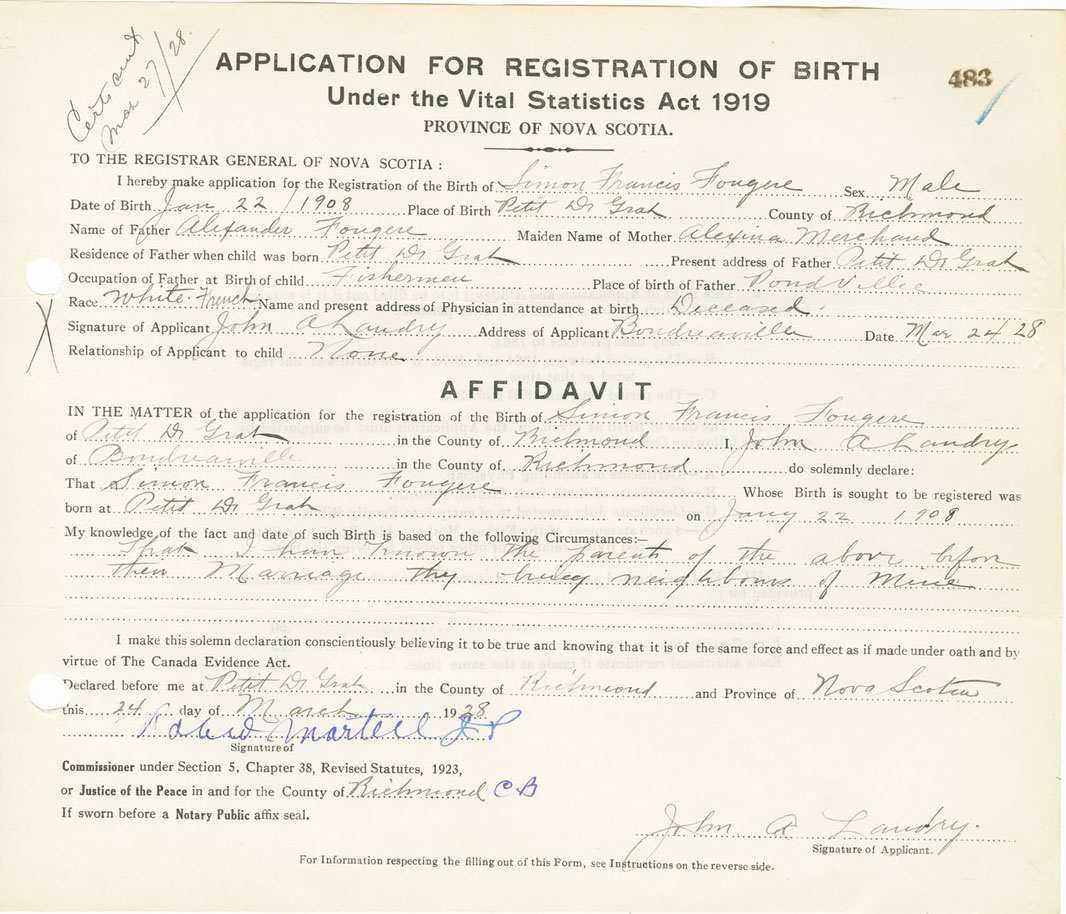 Cert sent
Mar 27/28.
APPLICATION FOR REGISTRATION OF BIRTH
483
Under the Vital Statistics Act 1919
PROVINCE OF NOVA SCOTIA.
TO THE REGISTRAR GENERAL OF NOVA SCOTIA :
I hereby make application for the Registration of the Birth of Simon Francis Fougere Sex Male
Date of Birth Jan 22 / 1908 Place of Birth Petit De Grat County of Richmond
Name of Father Alexander Fougere Maiden Name of Mother Alexina Merchand
Residence of Father when child was born Petit De Grat Present address of Father Petit De Grat
Occupation of Father at Birth of child Fishermen Place of birth of Father Pondville
Race White. French Name and present address of Physician in attendance at birth Diceased.
Signature of Applicant John A Landry Address of Applicant Boudreauville Date Mar 24 28
Relationship of Applicant to child None
X
AFFIDAVIT
IN THE MATTER of the application for the registration of the Birth of Simon Francis Fougere
of Petit De Grat in the County of Richmond I, John A Landry
of Boudreauville in the County of Richmond do solemnly declare:
That Simon Francis Fougere Whose Birth is sought to be registered was
born at Petit De Grat on Jany 22 1908
My knowledge of the fact and date of such Birth is based on the following Circumstances:—
That I have known the parents of the above before
their Marriage they being neighbours of Mine
I make this solemn declaration conscientiously believing it to be true and knowing that it is of the same force and effect as if made under oath and by
virtue of The Canada Evidence Act.
Declared before me at Petit De Grat in the County of Richmond and Province of Nova Scotia
this 24 day of March 1928
Martell J P
Signature of
Commissioner under Section 5, Chapter 38, Revised Statutes, 1923,
or Justice of the Peace in and for the County of Richmond C B
If sworn before a Notary Public affix seal.
John A Landry.
Signature of Applicant.
For Information respecting the filling out of this Form, see Instructions on the reverse side.